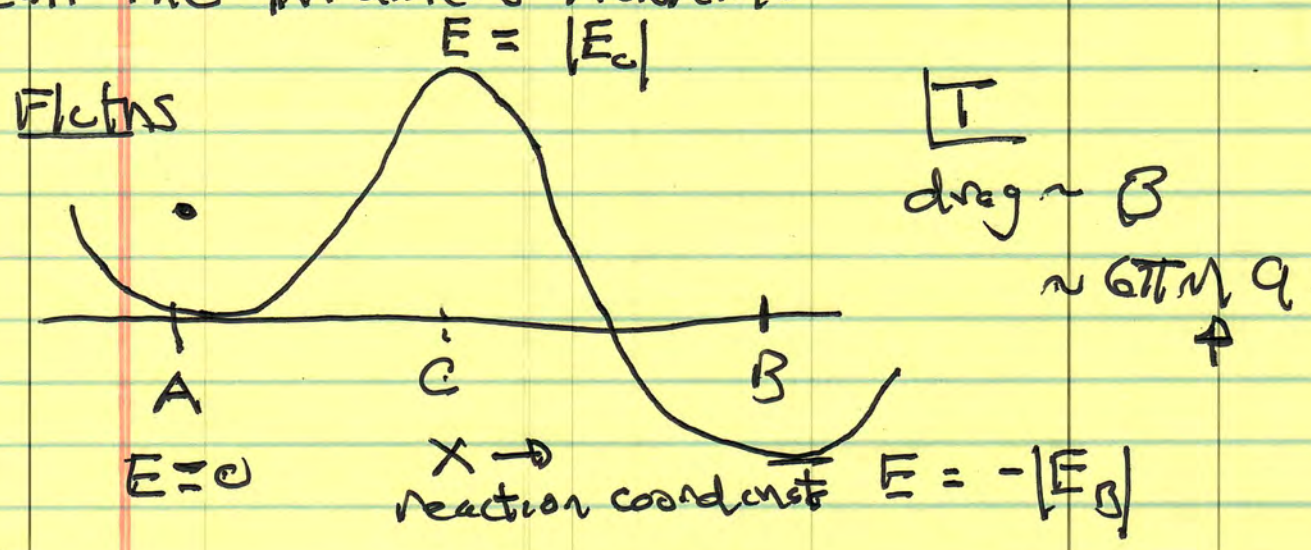 E = |E_c|
Flctns
T
drag ~ β
~ 6πη a
A
C
B
E = 0
X →
reaction coordinate
E = -|E_B|